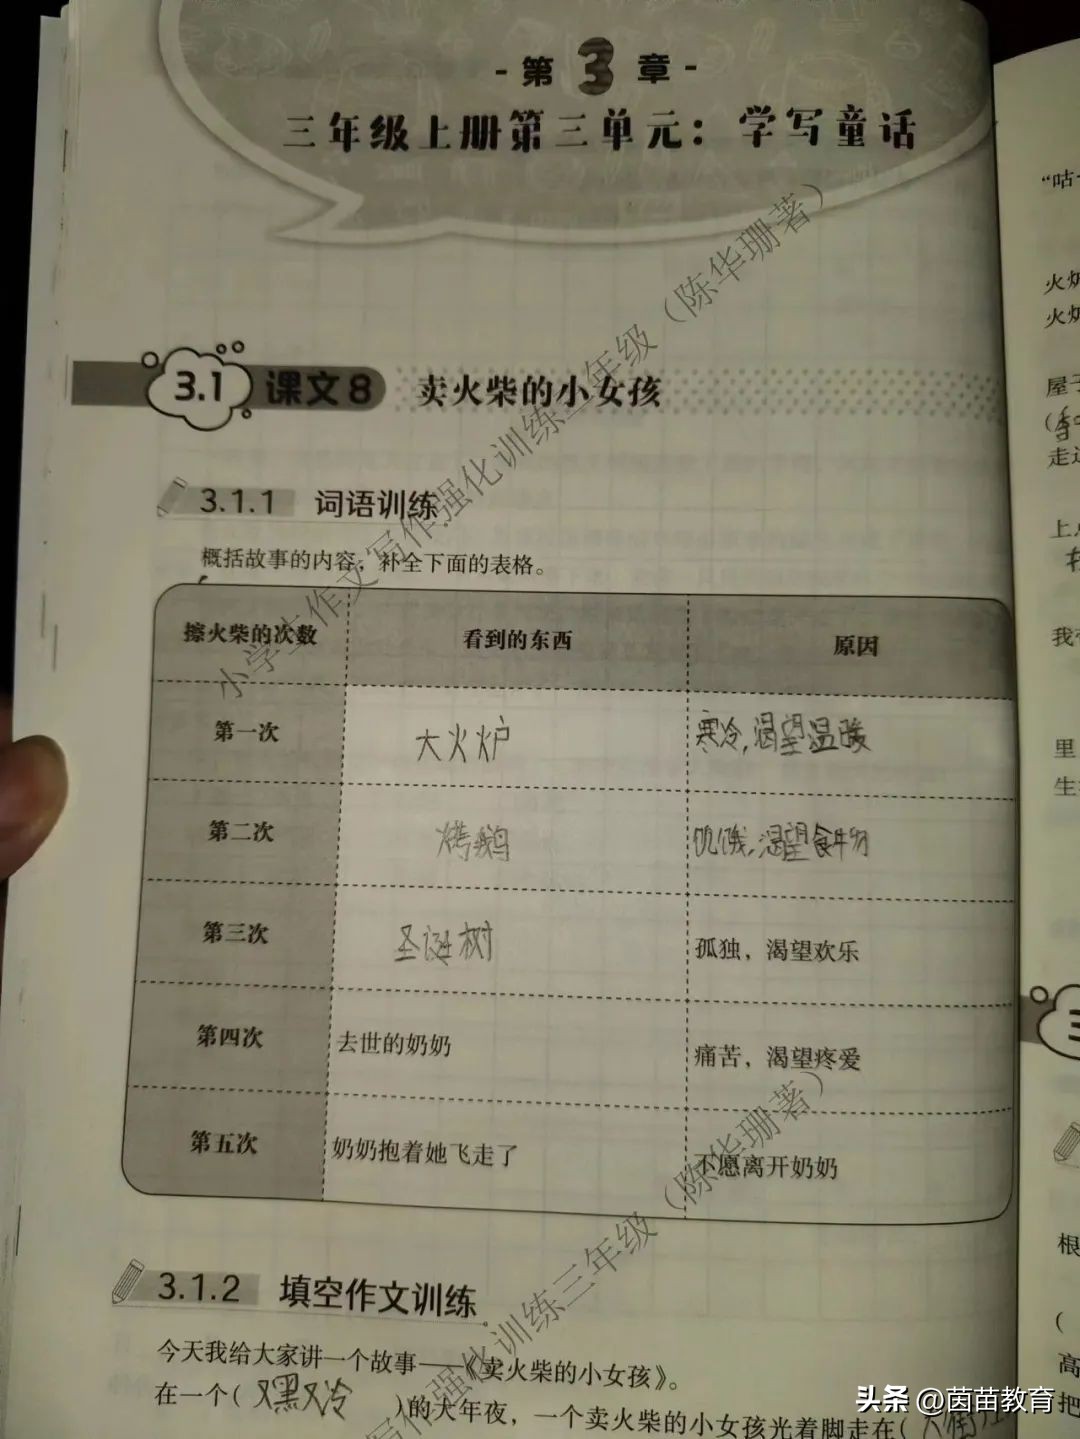 - 第3章 -
三年级上册第三单元：学写童话
3.1 课文8 卖火柴的小女孩
3.1.1 词语训练
概括故事的内容，补全下面的表格。
擦火柴的次数 看到的东西 原因
第一次 大火炉 寒冷，渴望温暖
第二次 烤鹅 饥饿，渴望食物
第三次 圣诞树 孤独，渴望欢乐
第四次 去世的奶奶 痛苦，渴望疼爱
第五次 奶奶抱着她飞走了 不愿离开奶奶
3.1.2 填空作文训练
今天我给大家讲一个故事——《卖火柴的小女孩》。
在一个( 又黑又冷 )的大年夜，一个卖火柴的小女孩光着脚走在(
小学生作文写作强化训练三年级（陈华珊著）
强化训练三年级（陈华珊著）
“咕
火炉
火炉
屋子
走过
上
我
里
生
根
(
高
把
头条 @茵苗教育